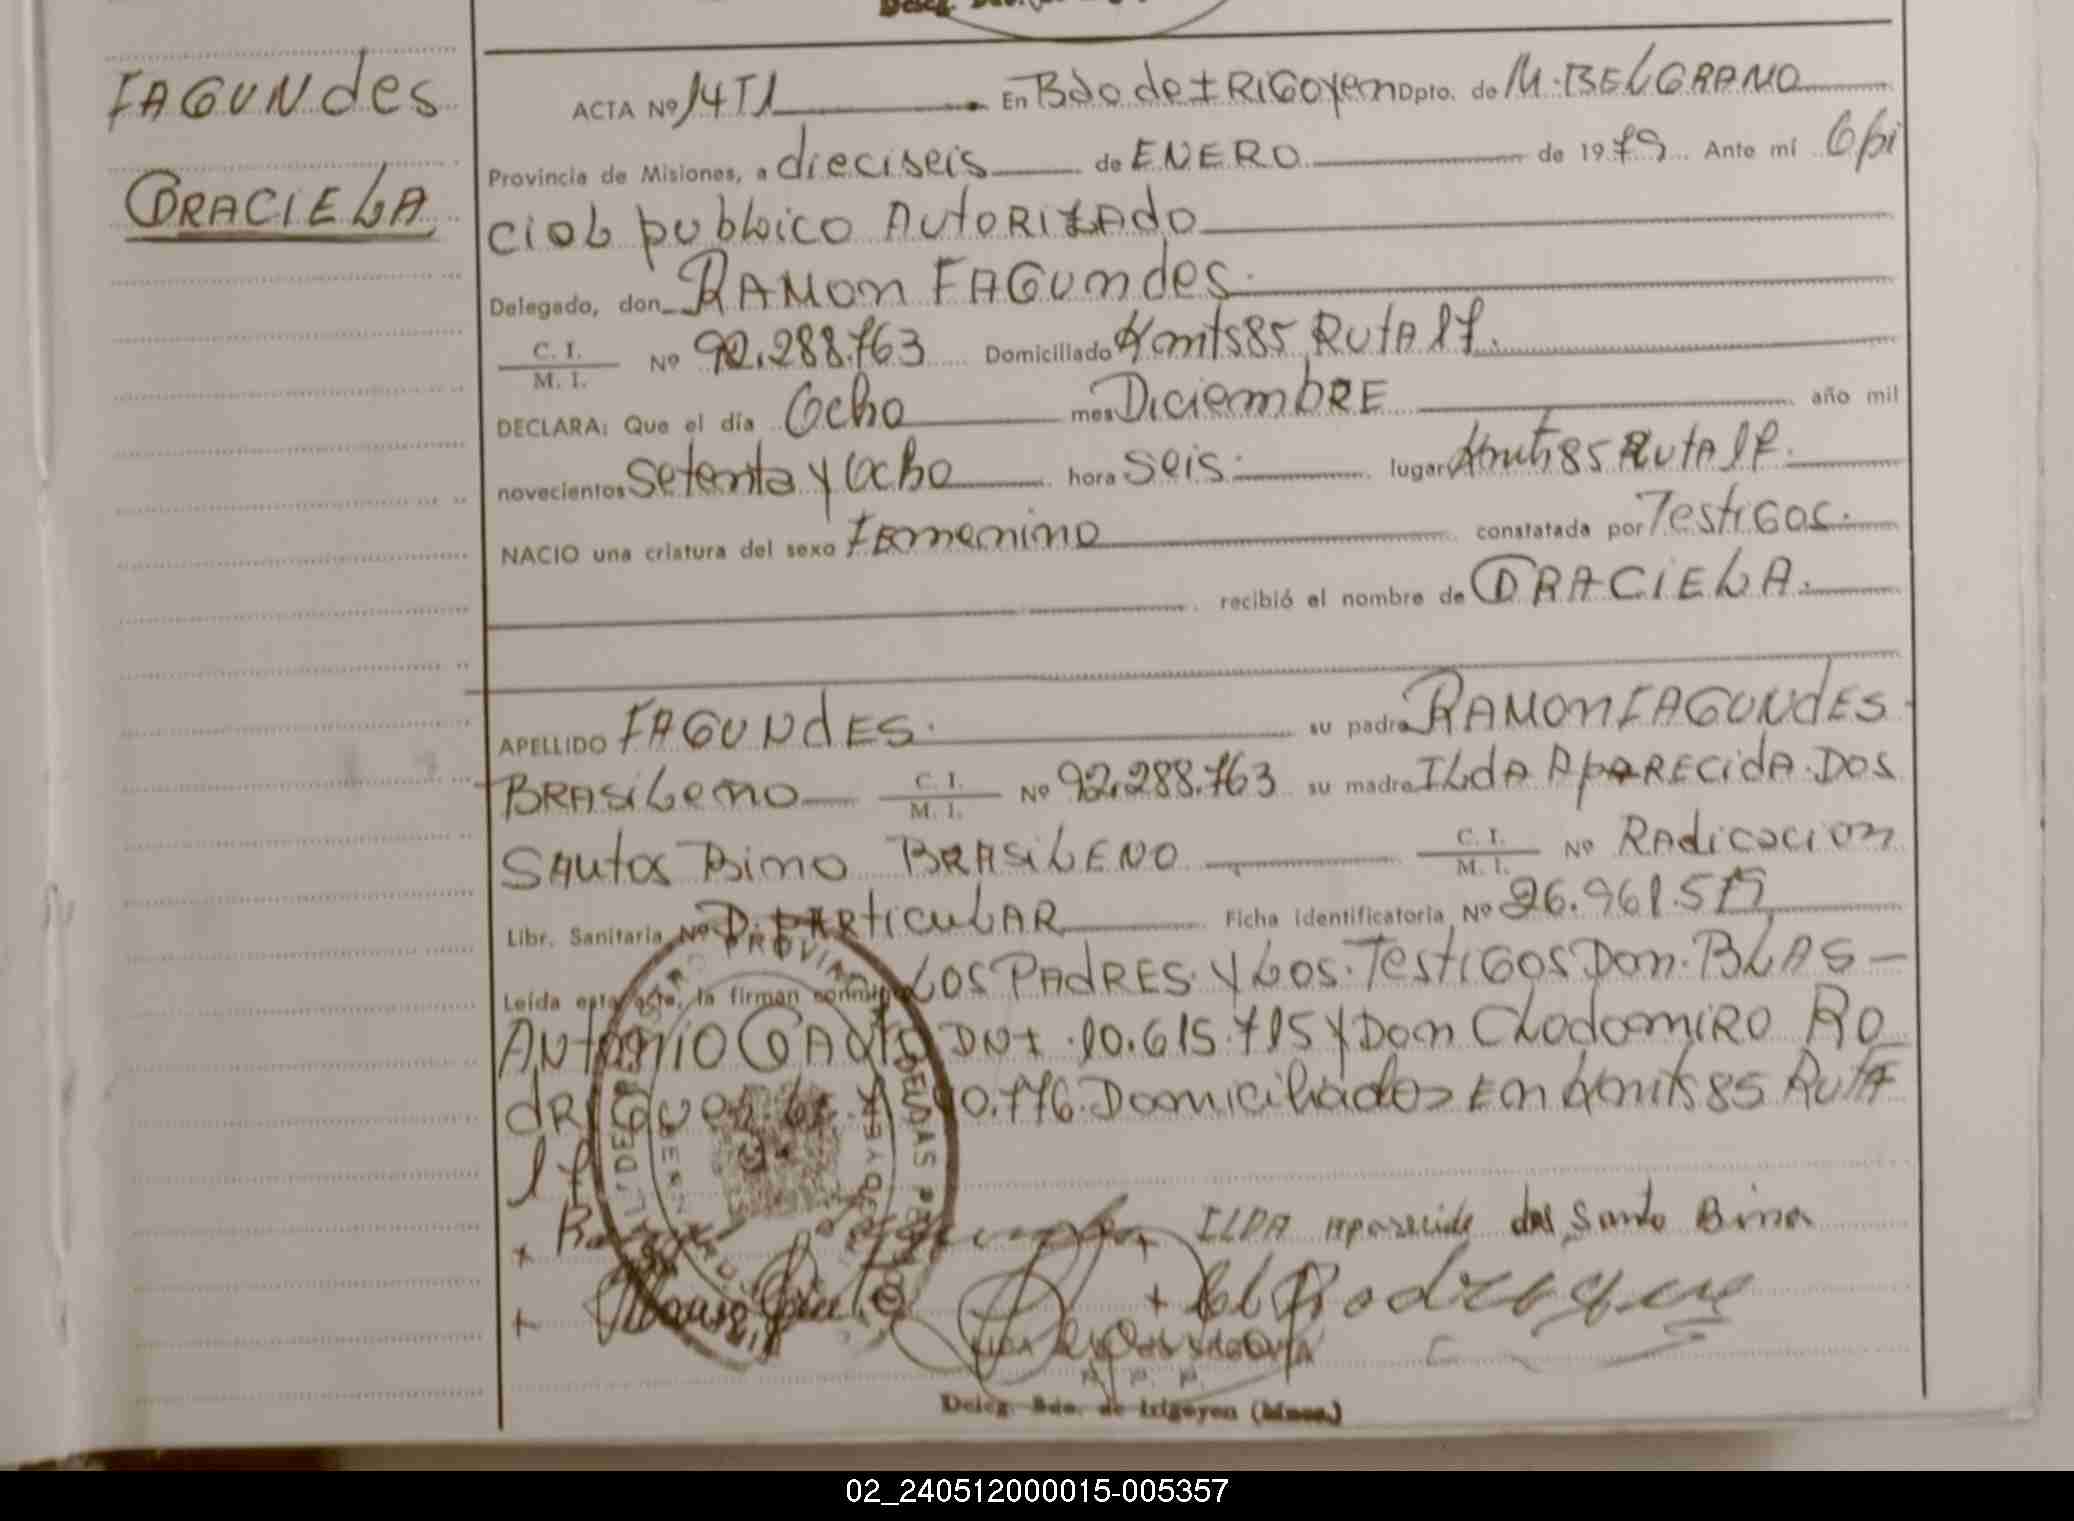 FAGUNdes
GRACIELA
ACTA Nº 14TI En Bdo de IRIGOyen Dpto. de M. BELGRANO
Provincia de Misiones, a dieciseis de ENERO de 1979 Ante mí Ofi
cial publico AutoRIZAdo
Delegado, don RAMon FAGUndes.
C. I.
M. I. Nº 92.288.763 Domiciliado Kmts 85 RUtA 17.
DECLARA: Que el día Ocho mes DiciembRE año mil
novecientos Setenta y Ocho hora Seis. lugar Kmts 85 RUtA 17.
NACIO una criatura del sexo FEmenino constatada por Testigos.
recibió el nombre de GRACIELA.
APELLIDO FAGUNdES. su padre RAMon FAGUNdES
BRAsileno C. I.
M. I. Nº 92.288.763 su madre ILdA ApARECidA. DOS
SAntos Bino BRAsilENO C. I.
M. I. Nº RAdicacion
Libr. Sanitaria Nº D. PARticulAR Ficha Identificatoria Nº 96.961.579
Leída esta acta, la firman conmigo LOS PAdRES. y los. TestIGOS Don. BLAS -
ANtonio DNI .10.615.715 y Don ClodomiRO RO
dRIGuez 0.776. Domiciliados En Kmts 85 RutA
17
+ ILDA Aparecida dos Santo Bina
+ + Rodrigue
Deleg. Bdo. de Irigoyen (Mnes.)
02_240512000015-005357